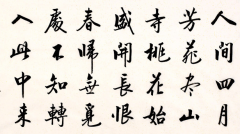 人間四月
芳菲尽山
寺桃花始
盛開長恨
春歸無覓
處不知轉
入此中来